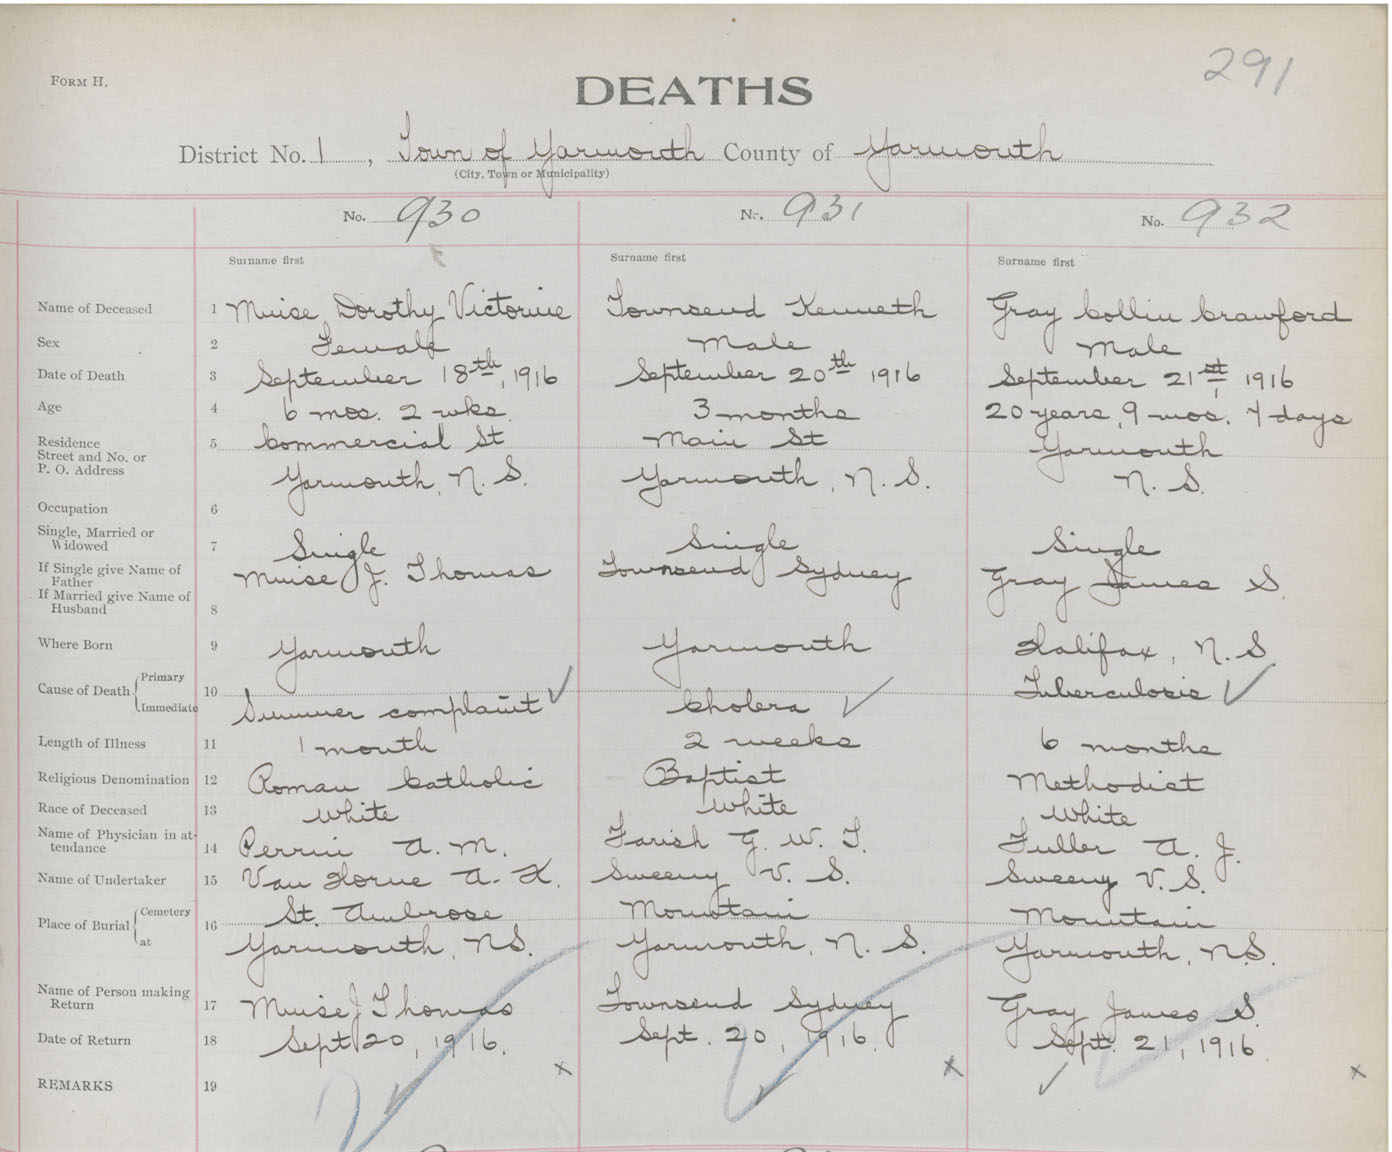 291
FORM H.
DEATHS
District No. 1, Town of Yarmouth County of Yarmouth
(City, Town or Municipality)
No. 930 No. 931 No. 932
Surname first Surname first Surname first
Name of Deceased 1 Muise Dorothy Victorine Townsend Kenneth Gray Collin Crawford
Sex 2 Female Male Male
Date of Death 3 September 18th, 1916 September 20th 1916 September 21st, 1916
Age 4 6 mos. 2 wks. 3 months 20 years, 9 mos. 7 days
Residence 5 Commercial St Main St Yarmouth
Street and No. or
P. O. Address Yarmouth, N. S. Yarmouth, N. S. N. S.
Occupation 6
Single, Married or
Widowed 7 Single Single Single
If Single give Name of
Father Muise J. Thomas Townsend Sydney Gray James S.
If Married give Name of
Husband 8
Where Born 9 Yarmouth Yarmouth Halifax, N. S.
Cause of Death Primary 10 Tuberculosis ✓
Immediate Summer complaint ✓ Cholera ✓
Length of Illness 11 1 month 2 weeks 6 months
Religious Denomination 12 Roman Catholic Baptist Methodist
Race of Deceased 13 White White White
Name of Physician in at-
tendance 14 Perrin A. M. Farish G. W. T. Fuller A. J.
Name of Undertaker 15 Van Horne A. K. Sweeny V. S. Sweeny V. S.
Place of Burial Cemetery 16 St. Ambrose Mountain Mountain
at Yarmouth, N.S. Yarmouth, N. S. Yarmouth, N.S.
Name of Person making
Return 17 Muise J Thomas Townsend Sydney Gray James S.
Date of Return 18 Sept 20, 1916. Sept. 20, 1916. Sept. 21, 1916.
REMARKS 19 x x ✓ x